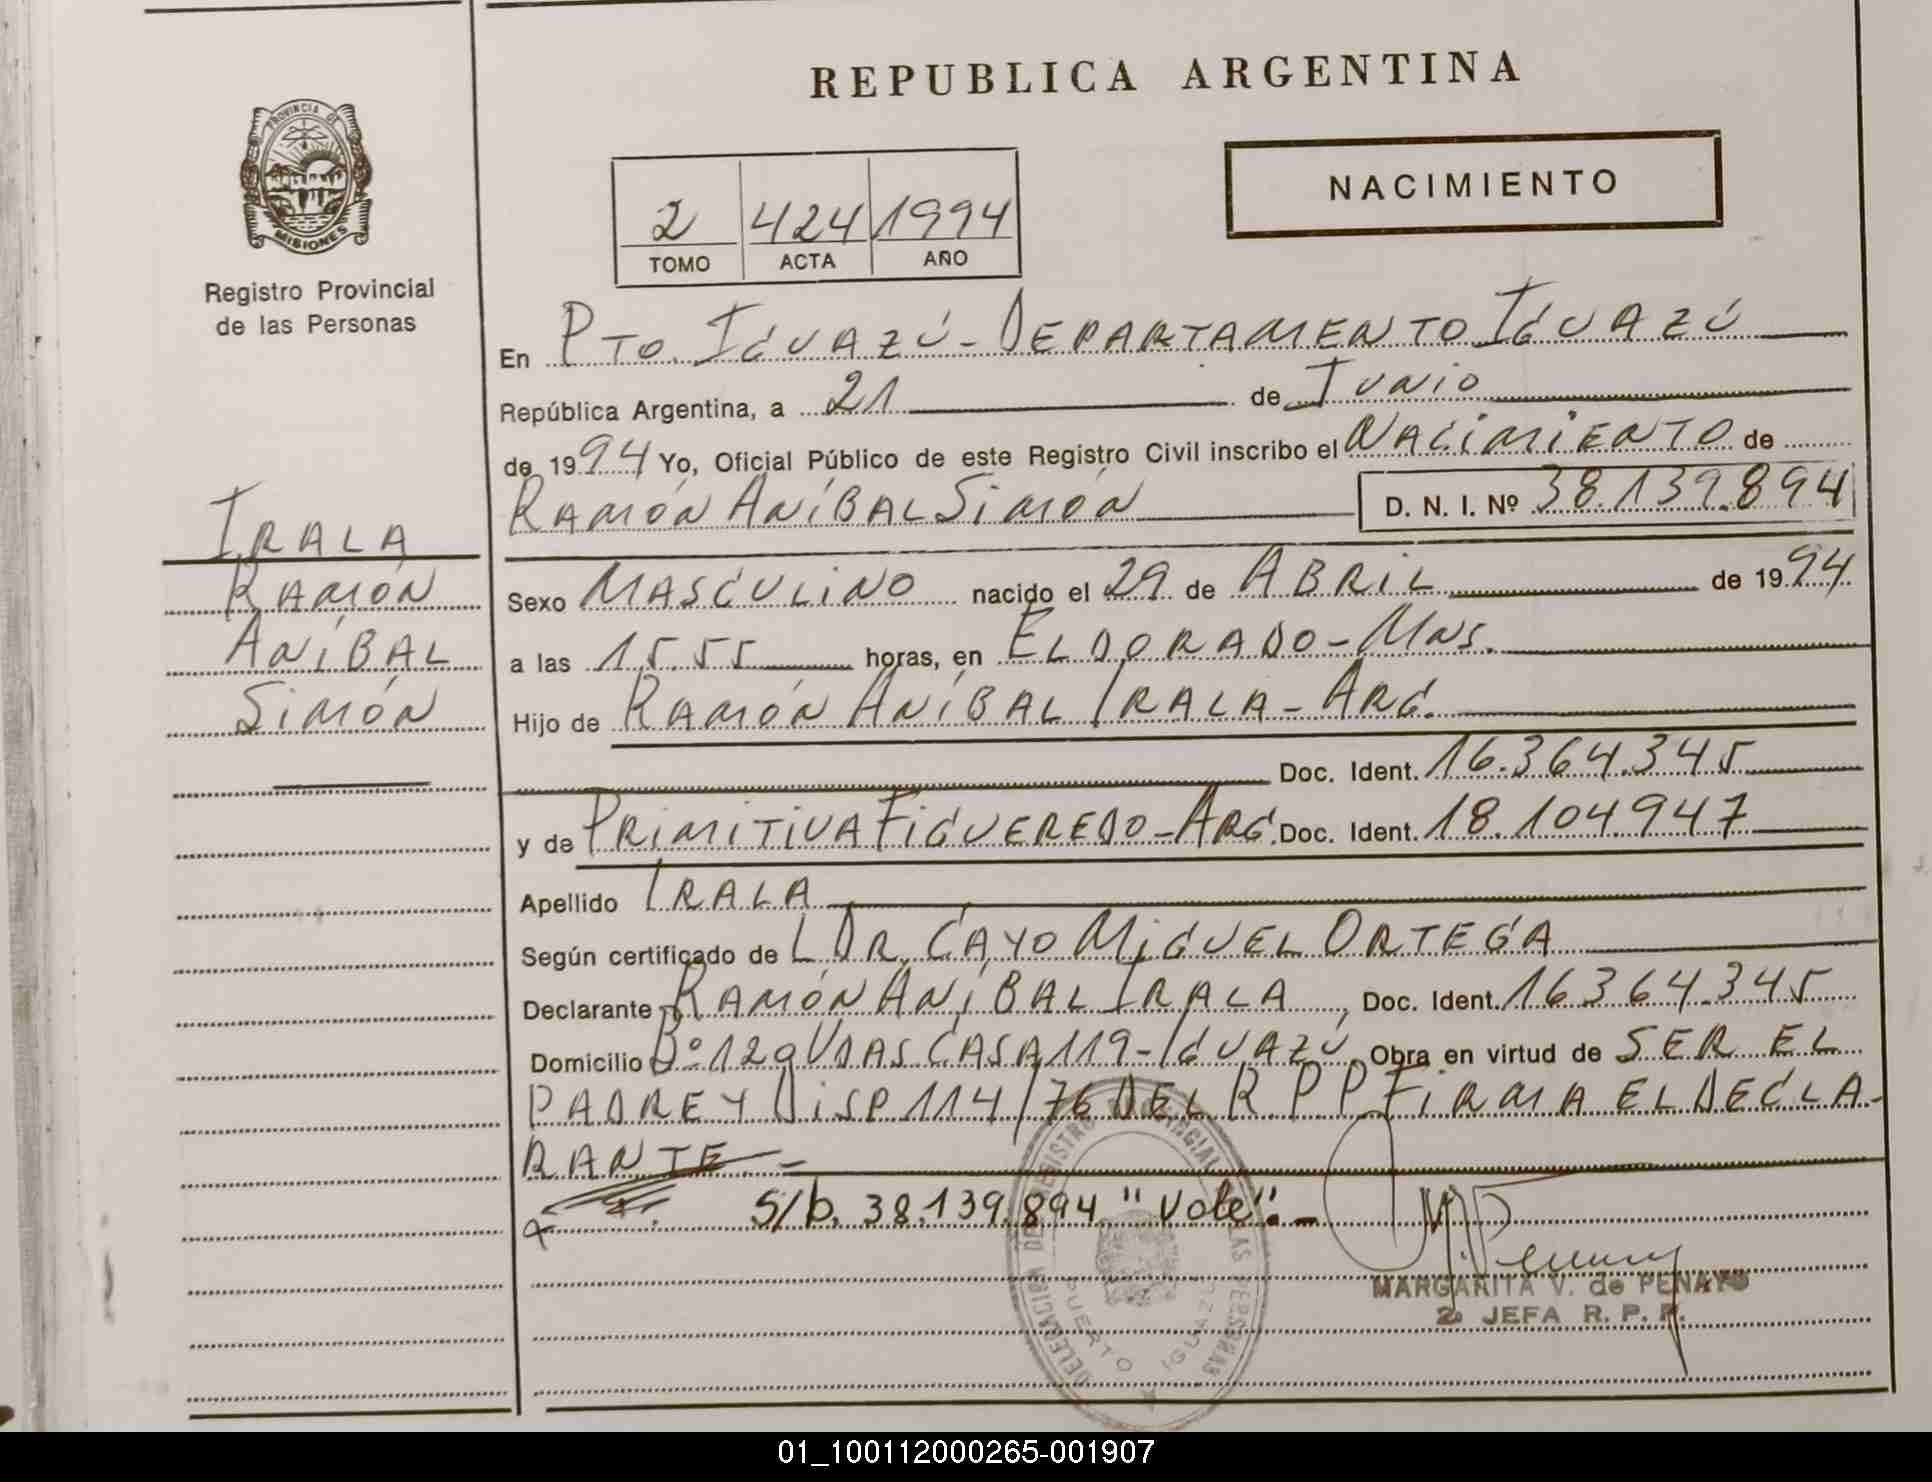 REPUBLICA ARGENTINA
PROVINCIA DE
MISIONES
Registro Provincial
de las Personas
NACIMIENTO
2 424 1994
TOMO ACTA AÑO
En PTO. IGUAZÚ - DEPARTAMENTO IGUAZÚ
República Argentina, a 21 de JUNIO
de 1994 Yo, Oficial Público de este Registro Civil inscribo el NACIMIENTO de
RAMÓN ANÍBAL SIMÓN D. N. I. Nº 38.139.894
IRALA
RAMÓN
ANÍBAL
SIMÓN
Sexo MASCULINO nacido el 29 de ABRIL de 1994
a las 15.55 horas, en ELDORADO - MNS.
Hijo de RAMÓN ANÍBAL IRALA - ARG.
Doc. Ident. 16.364.345
y de PRIMITIVA FIGUEREDO - ARG. Doc. Ident. 18.104.947
Apellido IRALA
Según certificado de L DR. CAYO MIGUEL ORTEGA
Declarante RAMÓN ANÍBAL IRALA, Doc. Ident. 16364.345
Domicilio Bº 120 VDAS CASA 119 - IGUAZÚ. Obra en virtud de SER EL
PADRE Y DISP 114/76 DEL R.P.P. FIRMA EL DECLA-
RANTE -
S/b. 38.139.894 "Vale". -
MARGARITA V. de PENAYO
2ª JEFA R. P. P.
DELEGACION DE REGISTRO PROVINCIAL DE LAS PERSONAS
PUERTO IGUAZU
01_100112000265-001907